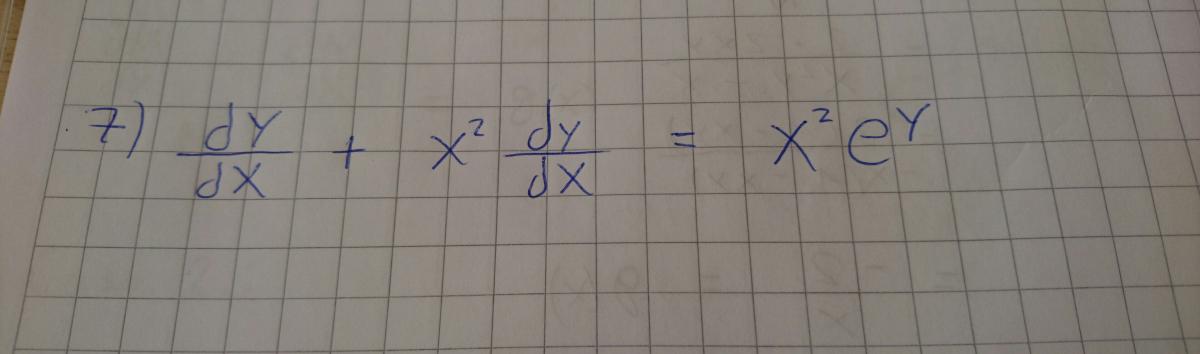 7) dY/dX + x² dy/dX = X² e^Y